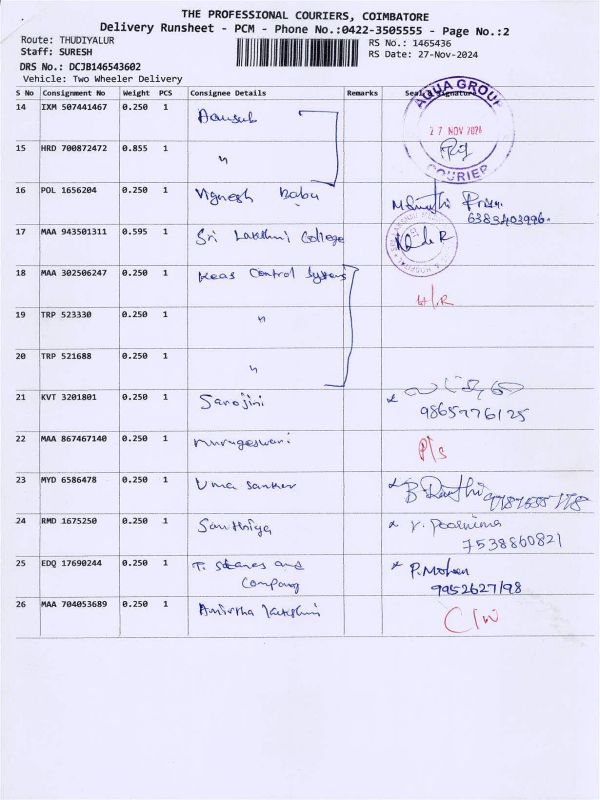 THE PROFESSIONAL COURIERS, COIMBATORE
Delivery Runsheet - PCM - Phone No.:0422-3505555 - Page No.:2
Route: THUDIYALUR
RS No.: 1465436
Staff: SURESH
RS Date: 27-Nov-2024
DRS No.: DCJB146543602
Vehicle: Two Wheeler Delivery
S No Consignment No Weight PCS Consignee Details Remarks Seal & Signature
AQUA GROUP
14 IXM 507441467 0.250 1
27 NOV 2024
15 HRD 700872472 0.855 1 "
COURIER
16 POL 1656204 0.250 1 Vignesh Babu
6383403996.
17 MAA 943501311 0.595 1 Sri Lakshmi College
18 MAA 302506247 0.250 1 Keas Control Systems
19 TRP 523330 0.250 1 "
20 TRP 521688 0.250 1 "
21 KVT 3201801 0.250 1 Sarojini
9865776125
22 MAA 867467140 0.250 1 Murugeswari P/s
23 MYD 6586478 0.250 1 Uma Sanker
24 RMD 1675250 0.250 1 Santhiya V. Poornima
7538860821
25 EDQ 17690244 0.250 1 T. Stanes and P. Mohan
Company 9952627198
26 MAA 704053689 0.250 1 Amirtha Lakshmi